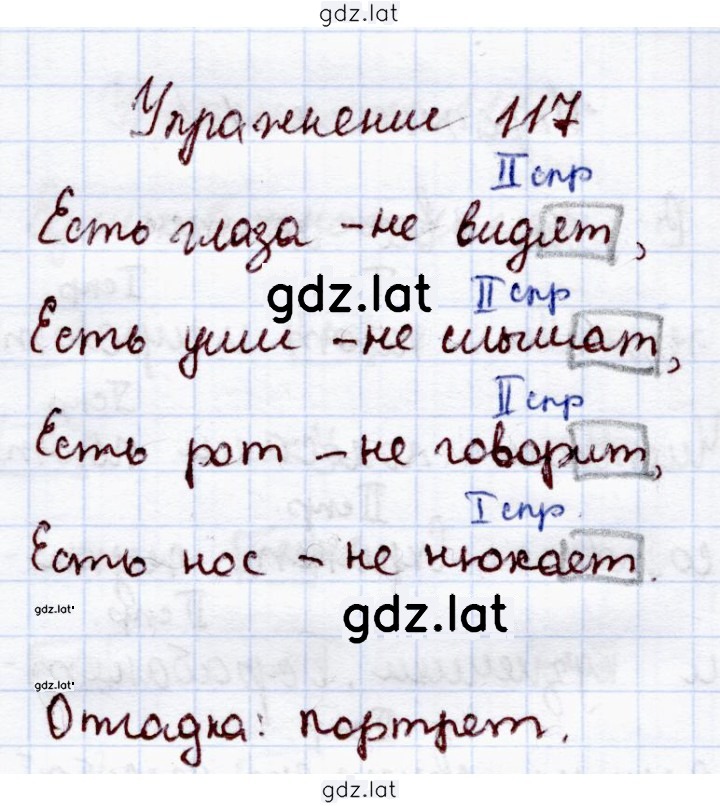 gdz.lat
Упражнение 117
II спр
Есть глаза - не видят,
gdz.lat
II спр
Есть уши - не слышат,
II спр
Есть рот - не говорит,
I спр.
Есть нос - не нюхает.
gdz.lat
gdz.lat
gdz.lat
Отгадка: портрет.
gdz.lat